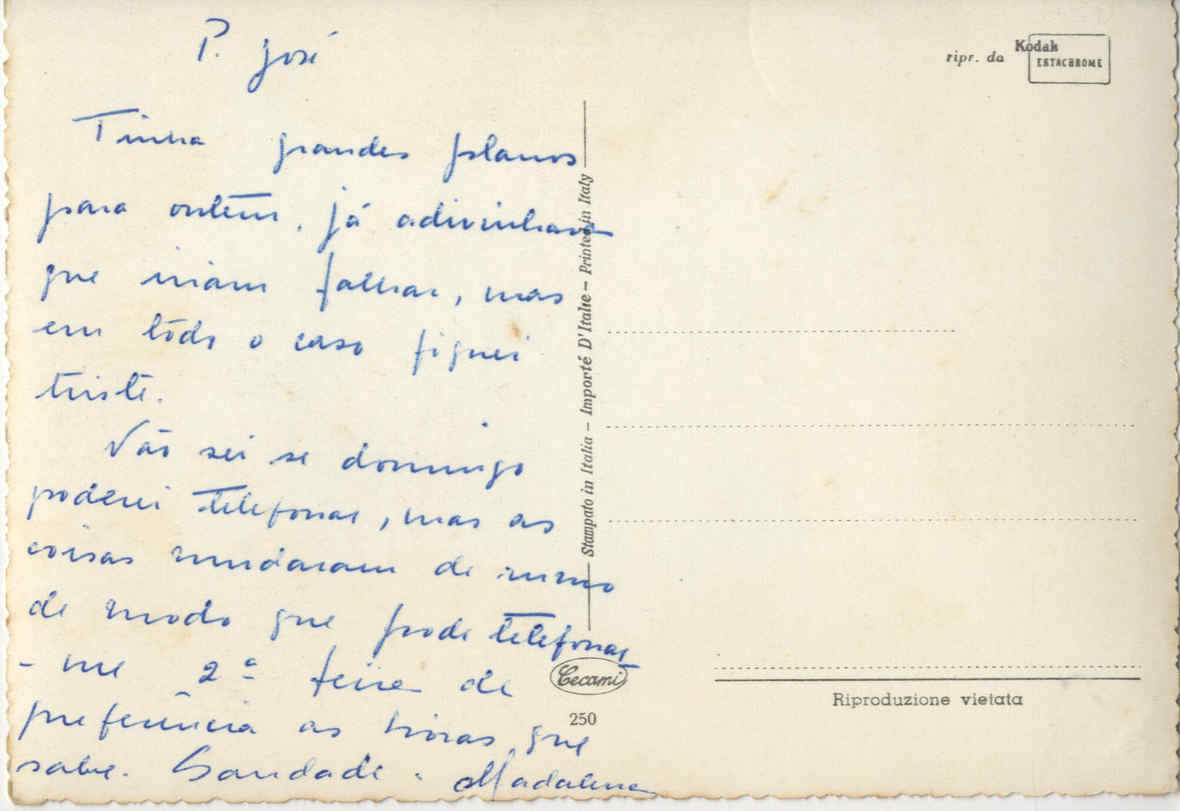 P. José
Tinha grandes planos
para ontem, já adivinhava
que iriam falhar, mas
em todo o caso fiquei
triste.
Não sei se domingo
poderei telefonar, mas as
coisas mudaram de rumo
de modo que pode telefonar
-me 2ª feira de
preferência as horas que
sabe. Saudade. Madalena
ripr. da Kodak
EKTACHROME
Stampato in Italia – Importé D'Italie – Printed in Italy
Cecami
250
Riproduzione vietata